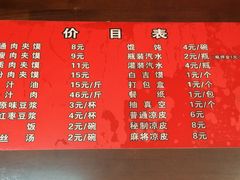 价目表
通肉夹馍 8元
瘦肉夹馍 9元
质肉夹馍 11元
分肉夹馍 15元
汁油 15元/斤
汁肉 46元/斤
原味豆浆 3元/杯
红枣豆浆 4元/杯
饭 2元/碗
丝汤 2元/碗
馄饨 4元/碗
瓶装汽水 2元/瓶
灌装汽水 4元/瓶
白吉馍 1元/个
打包盒 1元/个
餐纸 1元/包
抽真空 1元/个
普通凉皮 6元/碗
秘制凉皮 8元/碗
麻将凉皮 8元/碗